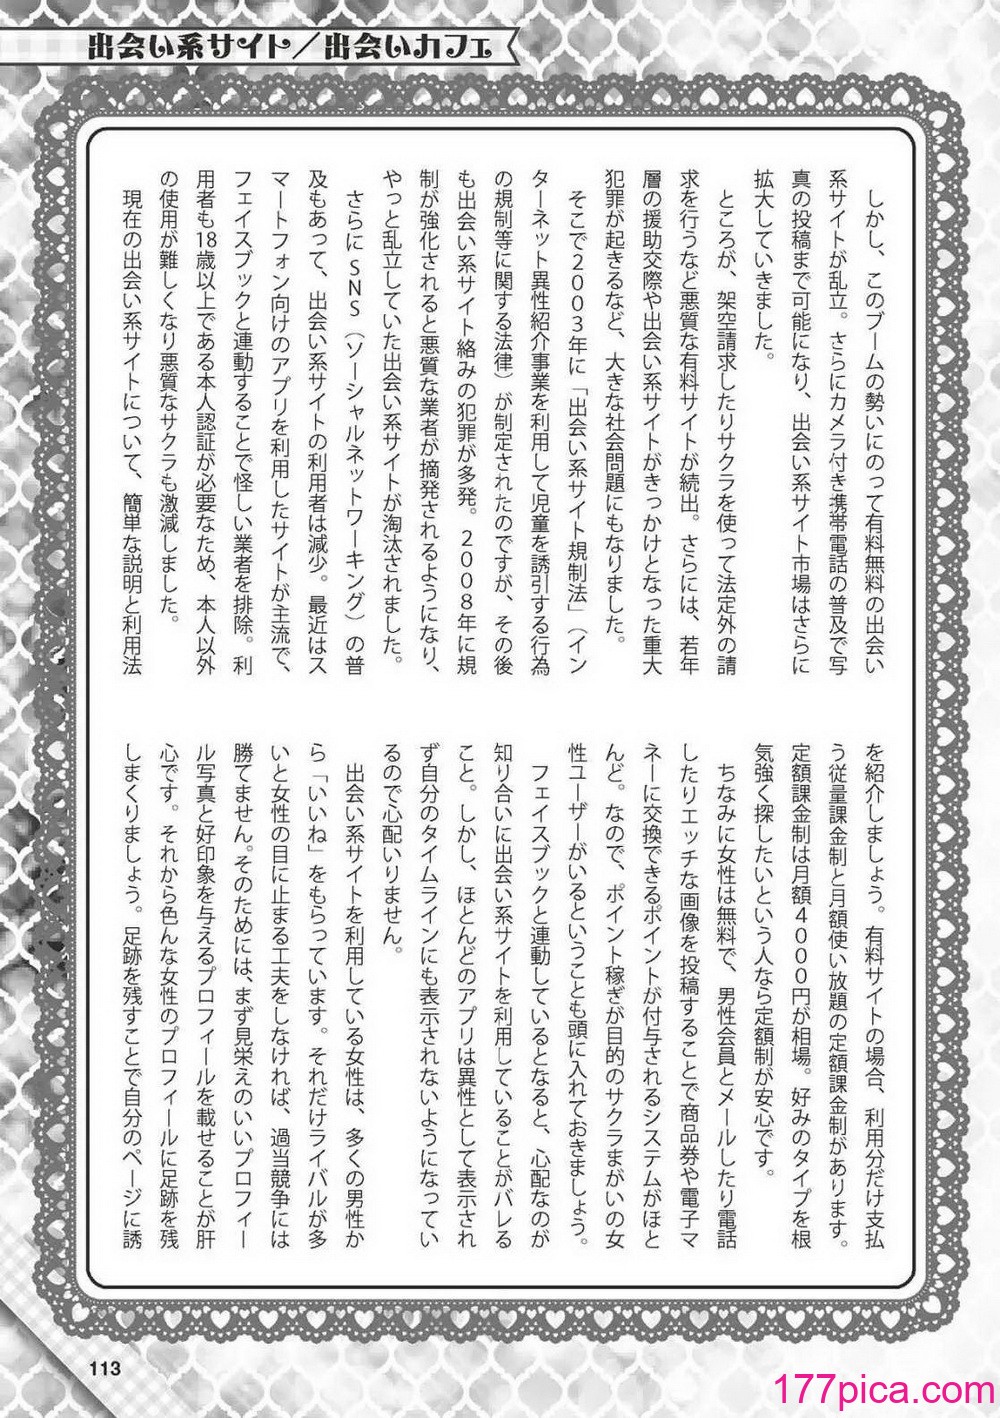 出会い系サイト／出会いカフェ
しかし、このブームの勢いにのって有料無料の出会い
系サイトが乱立。さらにカメラ付き携帯電話の普及で写
真の投稿まで可能になり、出会い系サイト市場はさらに
拡大していきました。
ところが、架空請求したりサクラを使って法定外の請
求を行うなど悪質な有料サイトが続出。さらには、若年
層の援助交際や出会い系サイトがきっかけとなった重大
犯罪が起きるなど、大きな社会問題にもなりました。
そこで2003年に「出会い系サイト規制法」（イン
ターネット異性紹介事業を利用して児童を誘引する行為
の規制等に関する法律）が制定されたのですが、その後
も出会い系サイト絡みの犯罪が多発。2008年に規
制が強化されると悪質な業者が摘発されるようになり、
やっと乱立していた出会い系サイトが淘汰されました。
さらにSNS（ソーシャルネットワーキング）の普
及もあって、出会い系サイトの利用者は減少。最近はス
マートフォン向けのアプリを利用したサイトが主流で、
フェイスブックと連動することで怪しい業者を排除。利
用者も18歳以上である本人認証が必要なため、本人以外
の使用が難しくなり悪質なサクラも激減しました。
現在の出会い系サイトについて、簡単な説明と利用法
を紹介しましょう。有料サイトの場合、利用分だけ支払
う従量課金制と月額使い放題の定額課金制があります。
定額課金制は月額4000円が相場。好みのタイプを根
気強く探したいという人なら定額制が安心です。
ちなみに女性は無料で、男性会員とメールしたり電話
したりエッチな画像を投稿することで商品券や電子マ
ネーに交換できるポイントが付与されるシステムがほと
んど。なので、ポイント稼ぎが目的のサクラまがいの女
性ユーザーがいるということも頭に入れておきましょう。
フェイスブックと連動しているとなると、心配なのが
知り合いに出会い系サイトを利用していることがバレる
こと。しかし、ほとんどのアプリは異性として表示され
ず自分のタイムラインにも表示されないようになってい
るので心配いりません。
出会い系サイトを利用している女性は、多くの男性か
ら「いいね」をもらっています。それだけライバルが多
いと女性の目に止まる工夫をしなければ、過当競争には
勝てません。そのためには、まず見栄えのいいプロフィー
ル写真と好印象を与えるプロフィールを載せることが肝
心です。それから色んな女性のプロフィールに足跡を残
しまくりましょう。足跡を残すことで自分のページに誘
113
177pica.com